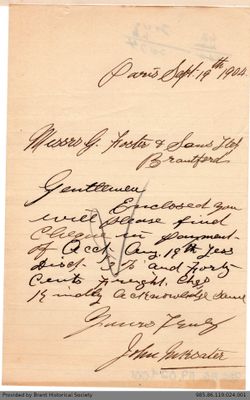 Paris Sept. 19th 1904
Messrs G. Foster & Sons
Brantford
Gentlemen
Enclosed you
will please find
Cheque in payment
of Acct Aug. 19th Less
Disct 5% and forty
Cents Freight.
Kindly acknowledge same
Yours Truly
John Inksater
Photo © Brant Historical Society
985.86.119.024.001